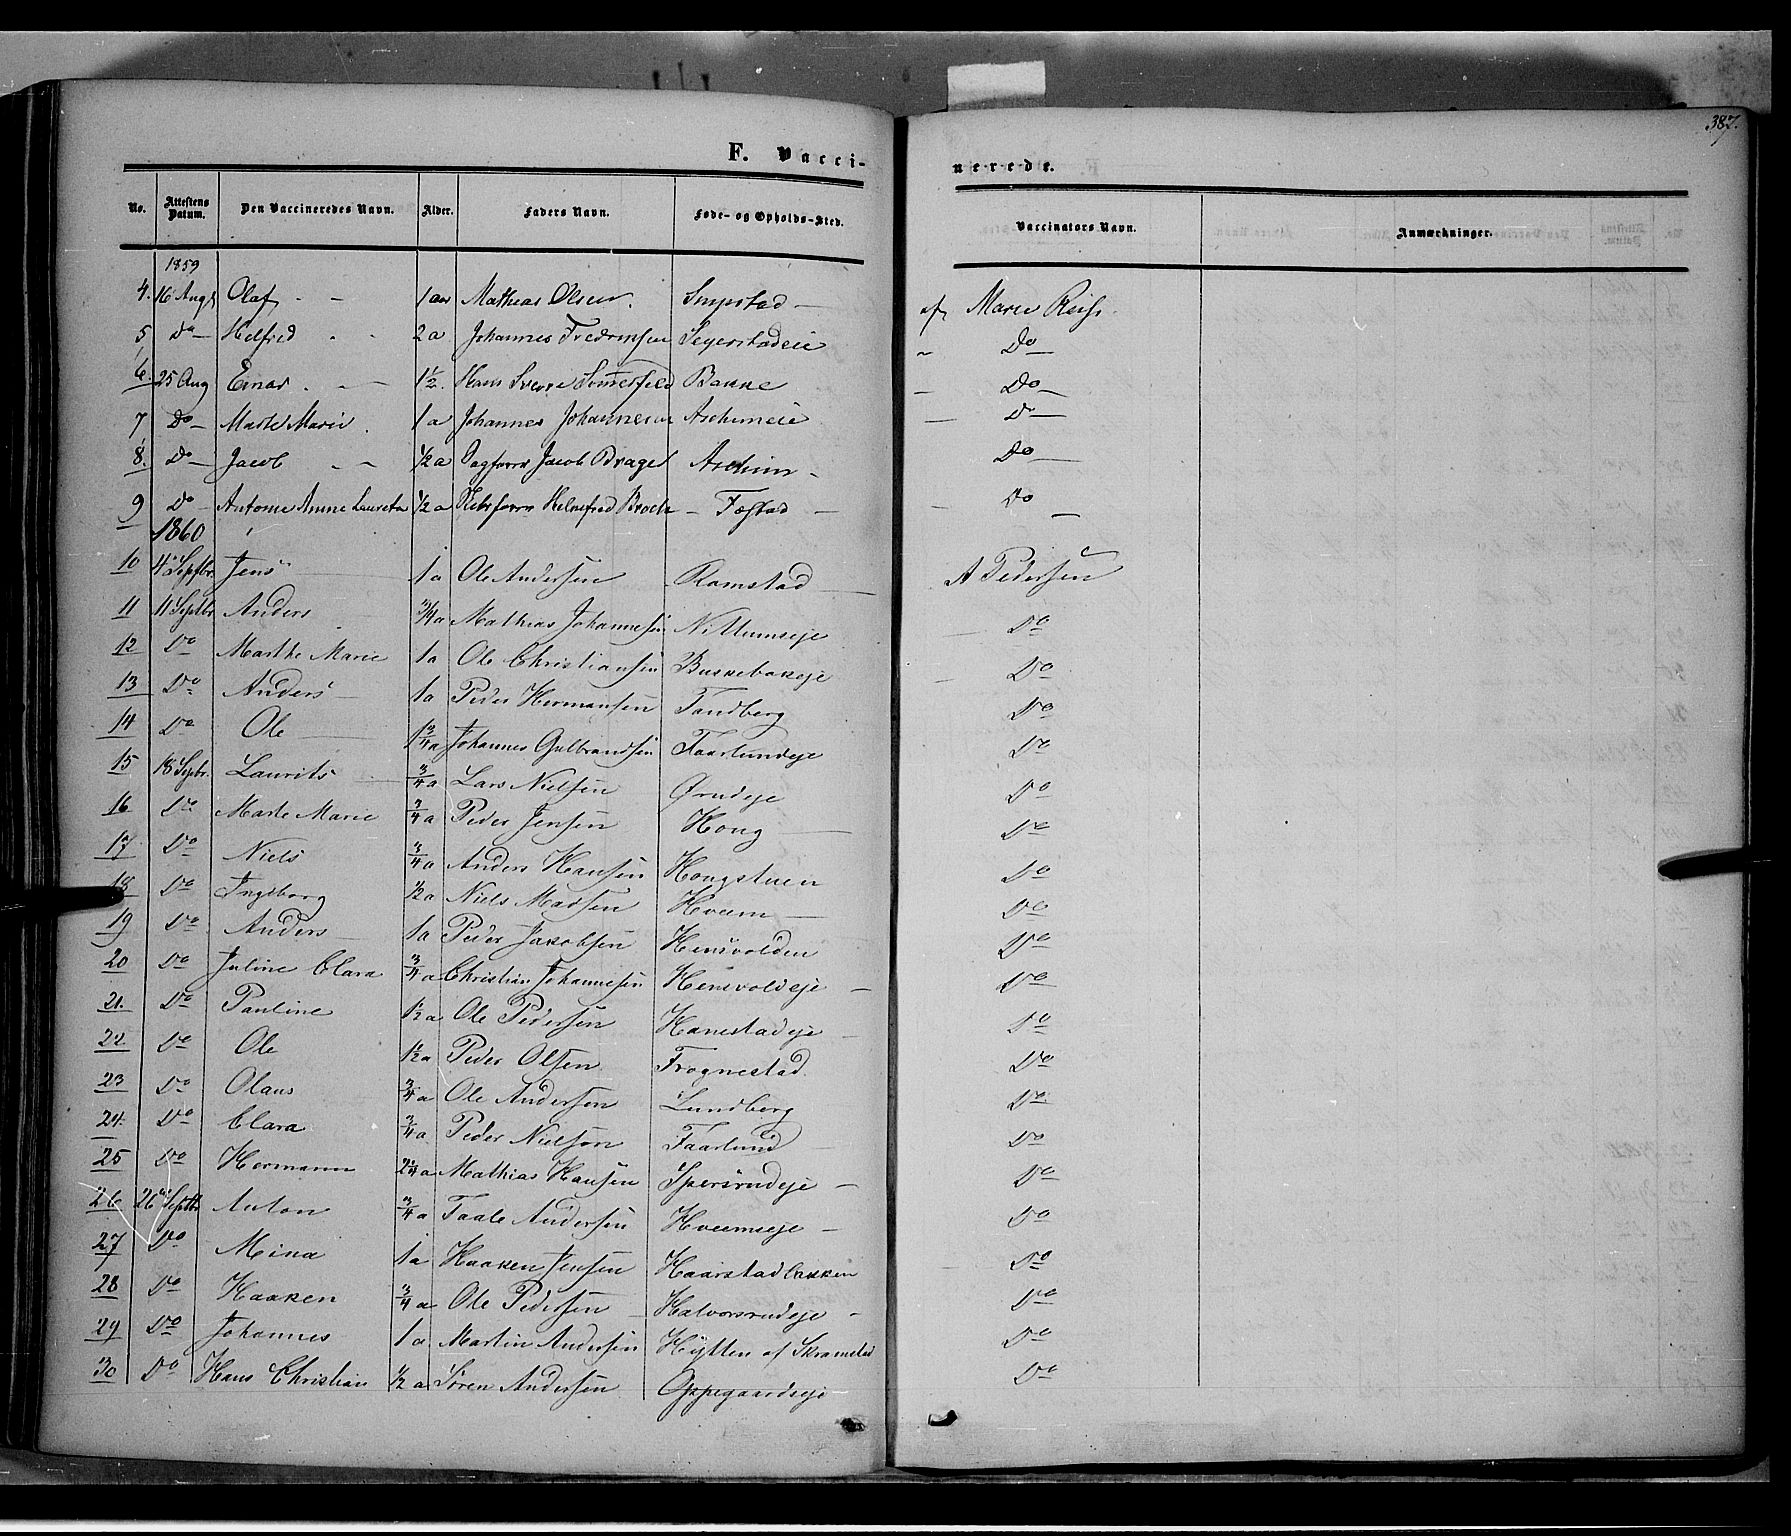 387.
F. Vacci-
nerede.
No. Attestens Datum. Den Vaccineredes Navn. Alder. Faders Navn. Føde- og Opholds-Sted. Vaccinators Navn. Anmærkninger.
1859
4. 16 Augt Olaf 1 aar Mathias Olsen. af Marie
5 Do Helfred 2 a Johannes Do
6 25 Aug Einar 1½ Hans Banke Do
7 Do Marte Marie 1 a Johannes Johannesen Aschimeie Do
8. Do Jacob ½ a Jacob Aschim Do
9 Do Antonie Anne ½ a Do
1860
10 4 Septbr. Jens 1 a Ole Andersen Ramstad A Pedersen
11 11 Septbr Anders 3/4 a Mathias Johannesen Nittumseje Do
12 Do Marthe Marie 1 a Ole Christiansen Do
13 Do Anders 1 a Peder Hermansen Tandberg Do
14 Do Ole 1 3/4 a Johannes Gulbrandsen Faarlundeje Do
15 18 Sepbr. Laurits 3/4 a Lars Nielsen Ørudeje Do
16 Do Marte Marie 3/4 a Peder Jensen Houg Do
17 Do Niels 3/4 a Anders Hansen Hougstuen Do
18 Do Ingeborg ½ a Niels Madsen Hveem Do
19 Do Anders 1 a Peder Jakobsen Hensvolden Do
20 Do Juline Clara 3/4 a Christian Johannesen Hensvoldeje Do
21. Do Pauline ½ a Ole Pedersen Hanestadeje Do
22. Do Ole ½ a Peder Olsen Frognestad Do
23 Do Olaus 3/4 a Ole Andersen Lundberg Do
24. Do Clara 3/4 a Peder Nielsen Faarlund Do
25 Do Hermann 2¼ a Mathias Hansen Spersrudeje Do
26 26 Septbr Anton 3/4 a Taale Andersen Hveemseje Do
27 Do Mina 1 a Haaken Jensen Haarstadbakken Do
28 Do Haaken 3/4 a Ole Pedersen Halvorsrudeje Do
29 Do Johannes 1 a Martin Andersen Hytten af Skramstad Do
30 Do Hans Christian ½ a Søren Andersen Oppegaardseje Do